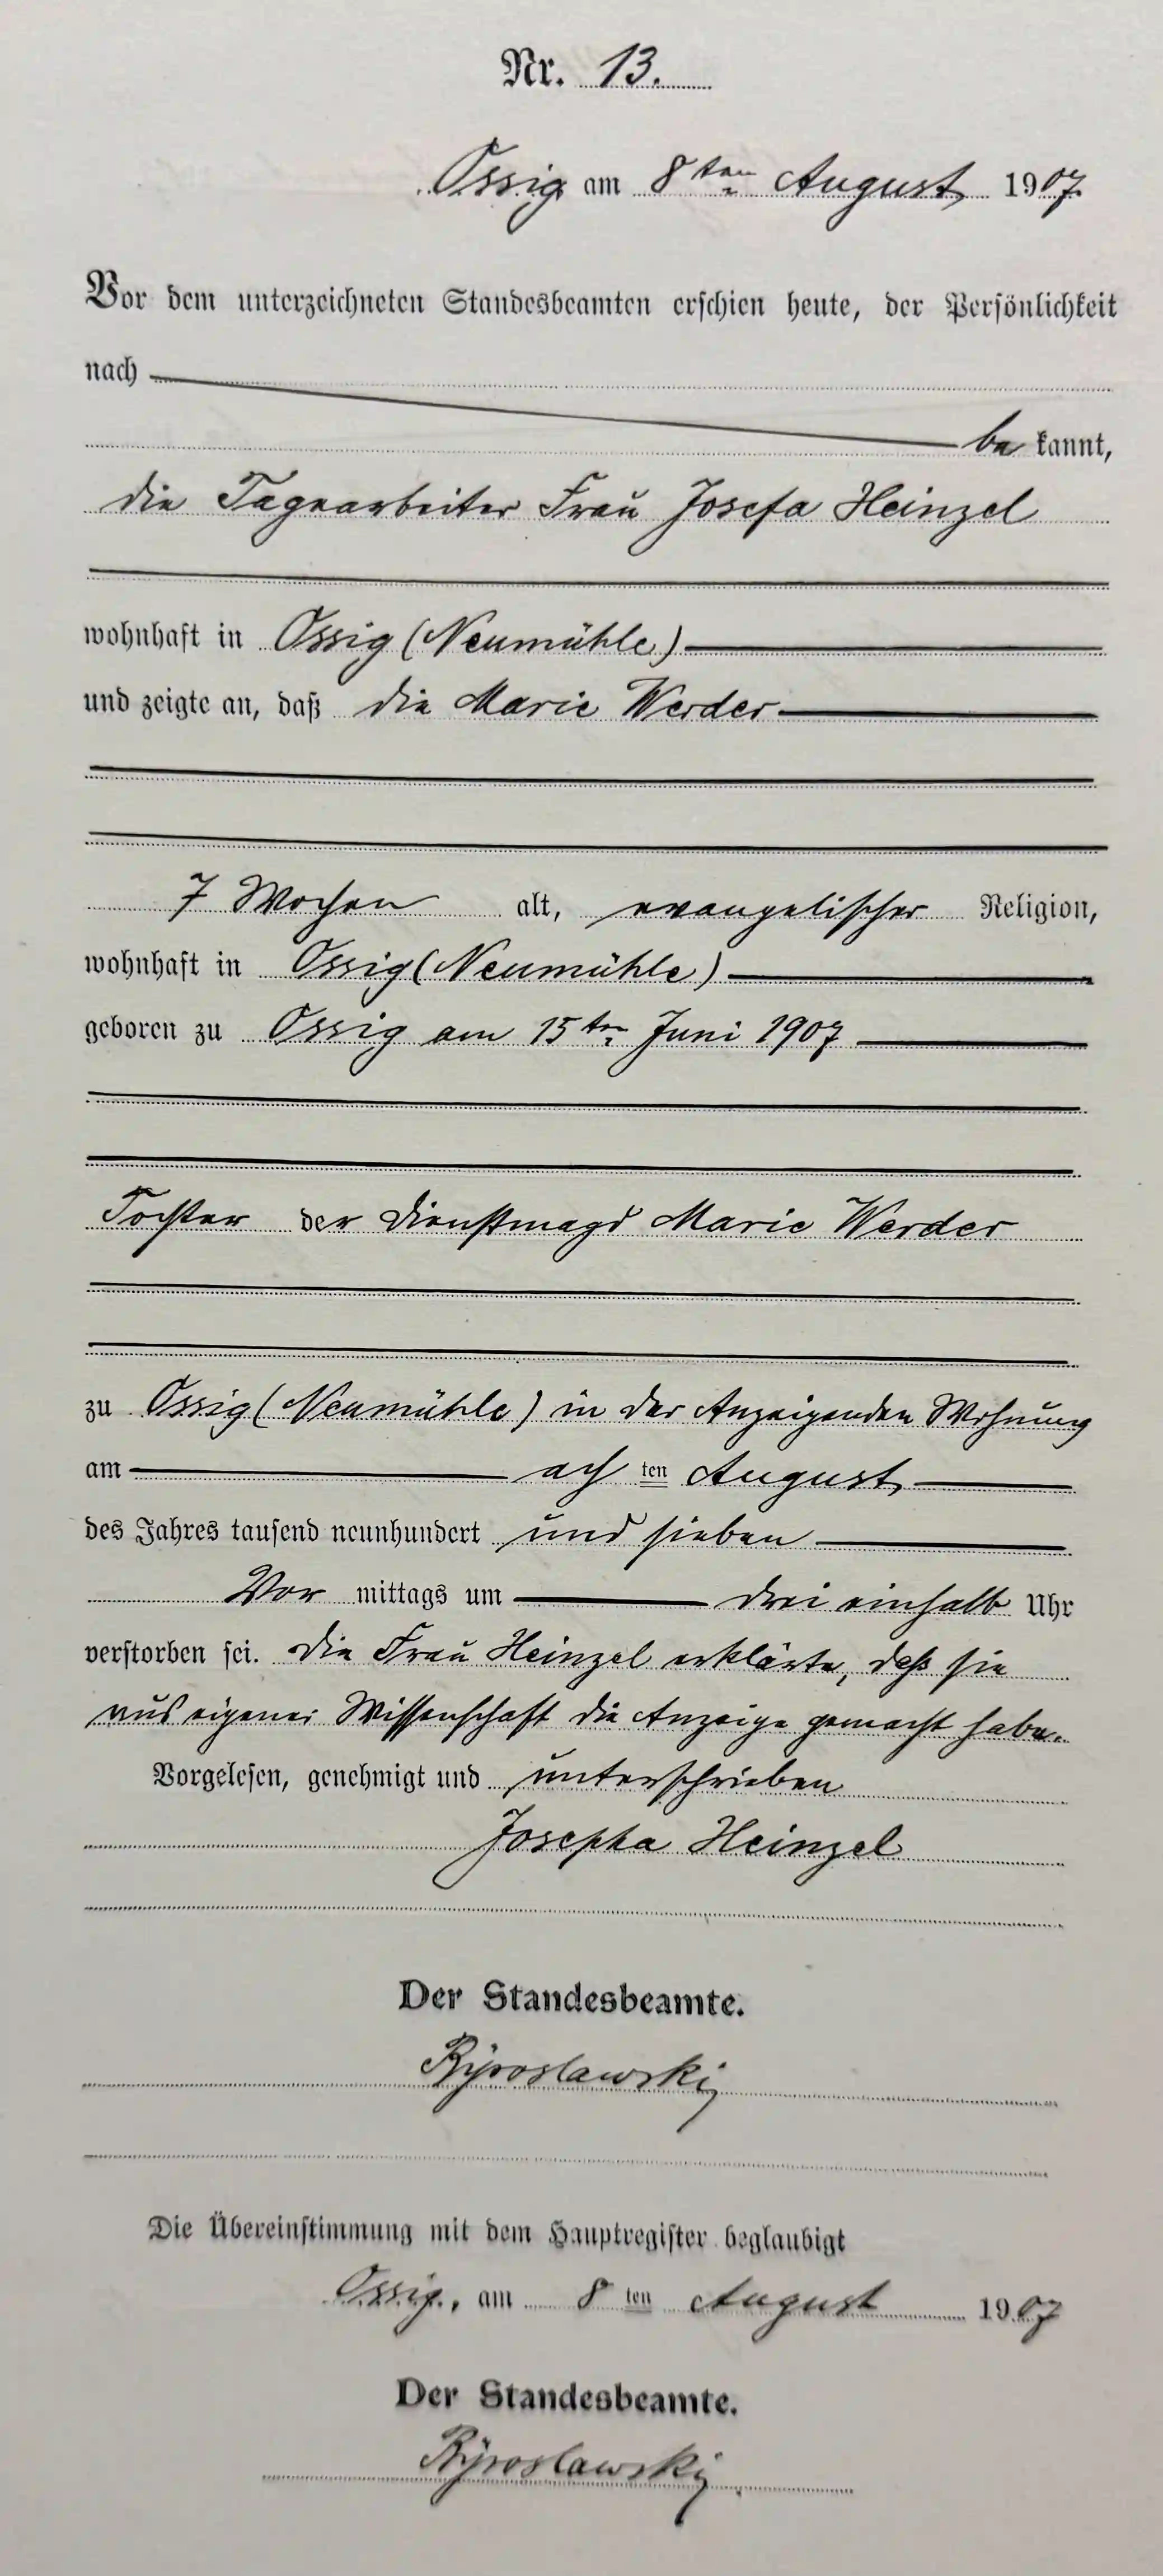 Nr. 13.
Ossig am 8ten August 1907.
Vor dem unterzeichneten Standesbeamten erschien heute, der Persönlichkeit
nach
be kannt,
die Tagearbeiter Frau Josefa Heinzel
wohnhaft in Ossig (Neumühle)
und zeigte an, daß die Marie Werder
7 Wochen alt, evangelischer Religion,
wohnhaft in Ossig (Neumühle)
geboren zu Ossig am 15ten Juni 1907
Tochter der Dienstmagd Marie Werder
zu Ossig (Neumühle) in der Anzeigenden Wohnung
am ach ten August
des Jahres tausend neunhundert und sieben
Vor mittags um drei einhalb Uhr
verstorben sei. Die Frau Heinzel erklärte, daß sie
aus eigener Wissenschaft die Anzeige gemacht habe.
Vorgelesen, genehmigt und unterschrieben
Josepha Heinzel
Der Standesbeamte.
Die Übereinstimmung mit dem Hauptregister beglaubigt
Ossig, am 8 ten August 1907
Der Standesbeamte.